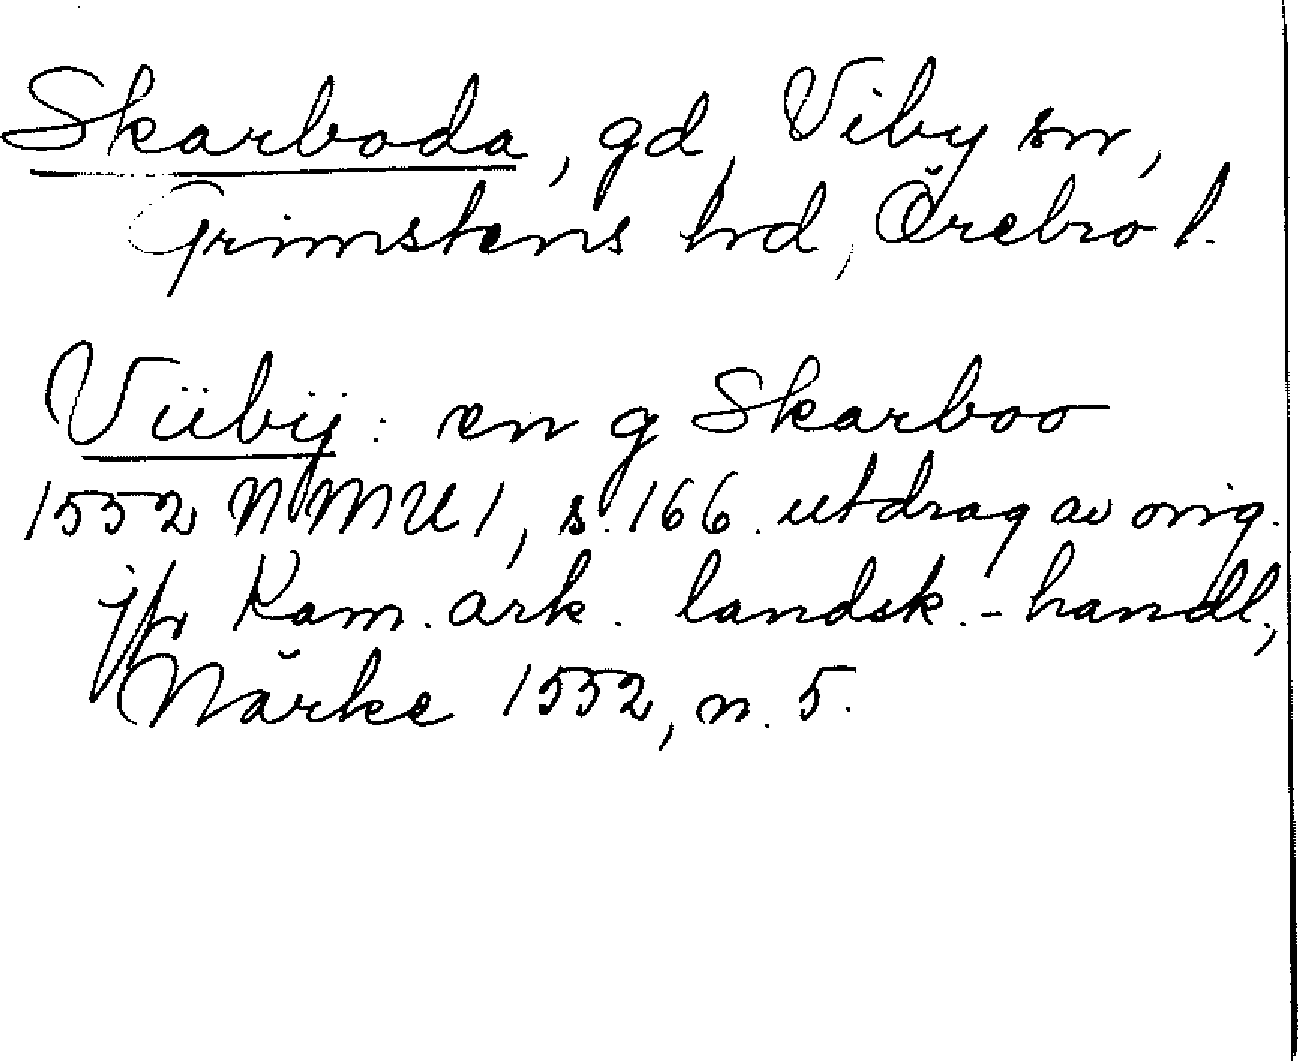 Skarboda, gd, Viby sn,
Grimstens hd, Örebro l.
Viibÿ: en g Skarboo
1552 NMU 1, s. 166. utdrag av orig.
jfr Kam. ark. landsk.-handl;
Närke 1552, n. 5.